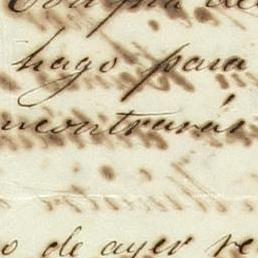 hago para
ncontrarás
o de ayer re